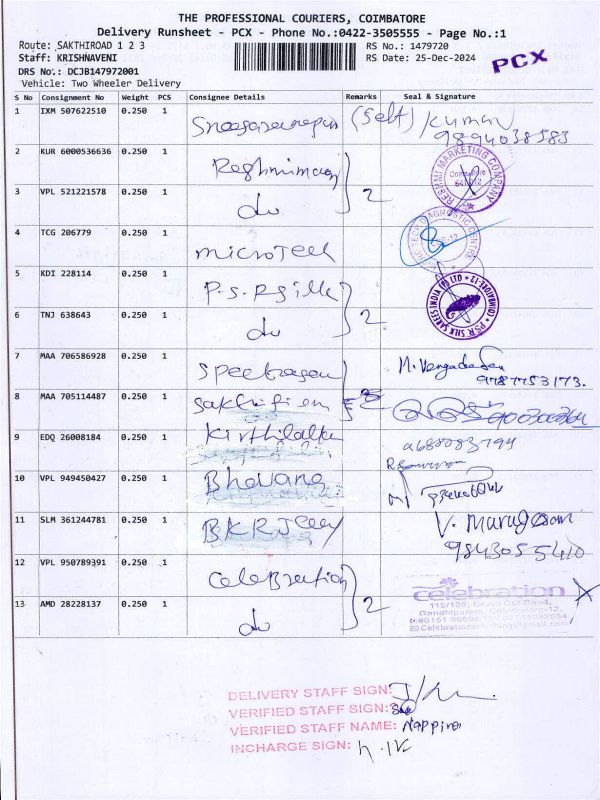 THE PROFESSIONAL COURIERS, COIMBATORE
Delivery Runsheet - PCX - Phone No.:0422-3505555 - Page No.:1
Route: SAKTHIROAD 1 2 3
RS No.: 1479720
Staff: KRISHNAVENI
RS Date: 25-Dec-2024
PCX
DRS No.: DCJB147972001
Vehicle: Two Wheeler Delivery
S No Consignment No Weight PCS Consignee Details Remarks Seal & Signature
1 IXM 507622510 0.250 1 (Self) Kumar
9894038583
2 KUR 6000536636 0.250 1
RESHMI MARKETING COMPANY
3 VPL 521221578 0.250 1 do 2
4 TCG 206779 0.250 1 microTech
DIAGNOSTIC CENTRE
5 KDI 228114 0.250 1 P.S.R Silk
P.S.R SILK SAREES INDIA (P) LTD
6 TNJ 638643 0.250 1 do 2
7 MAA 706586928 0.250 1
9787753173.
8 MAA 705114487 0.250 1
9 EDQ 26008184 0.250 1 Kirthilalka
10 VPL 949450427 0.250 1 Bhavana
11 SLM 361244781 0.250 1 V. Murugesan
9843055410
12 VPL 950789391 0.250 1 Celebration
celebration
Gandhipuram, Coimbatore-12.
13 AMD 28228137 0.250 1 do 2
DELIVERY STAFF SIGN:
VERIFIED STAFF SIGN:
VERIFIED STAFF NAME:
INCHARGE SIGN: